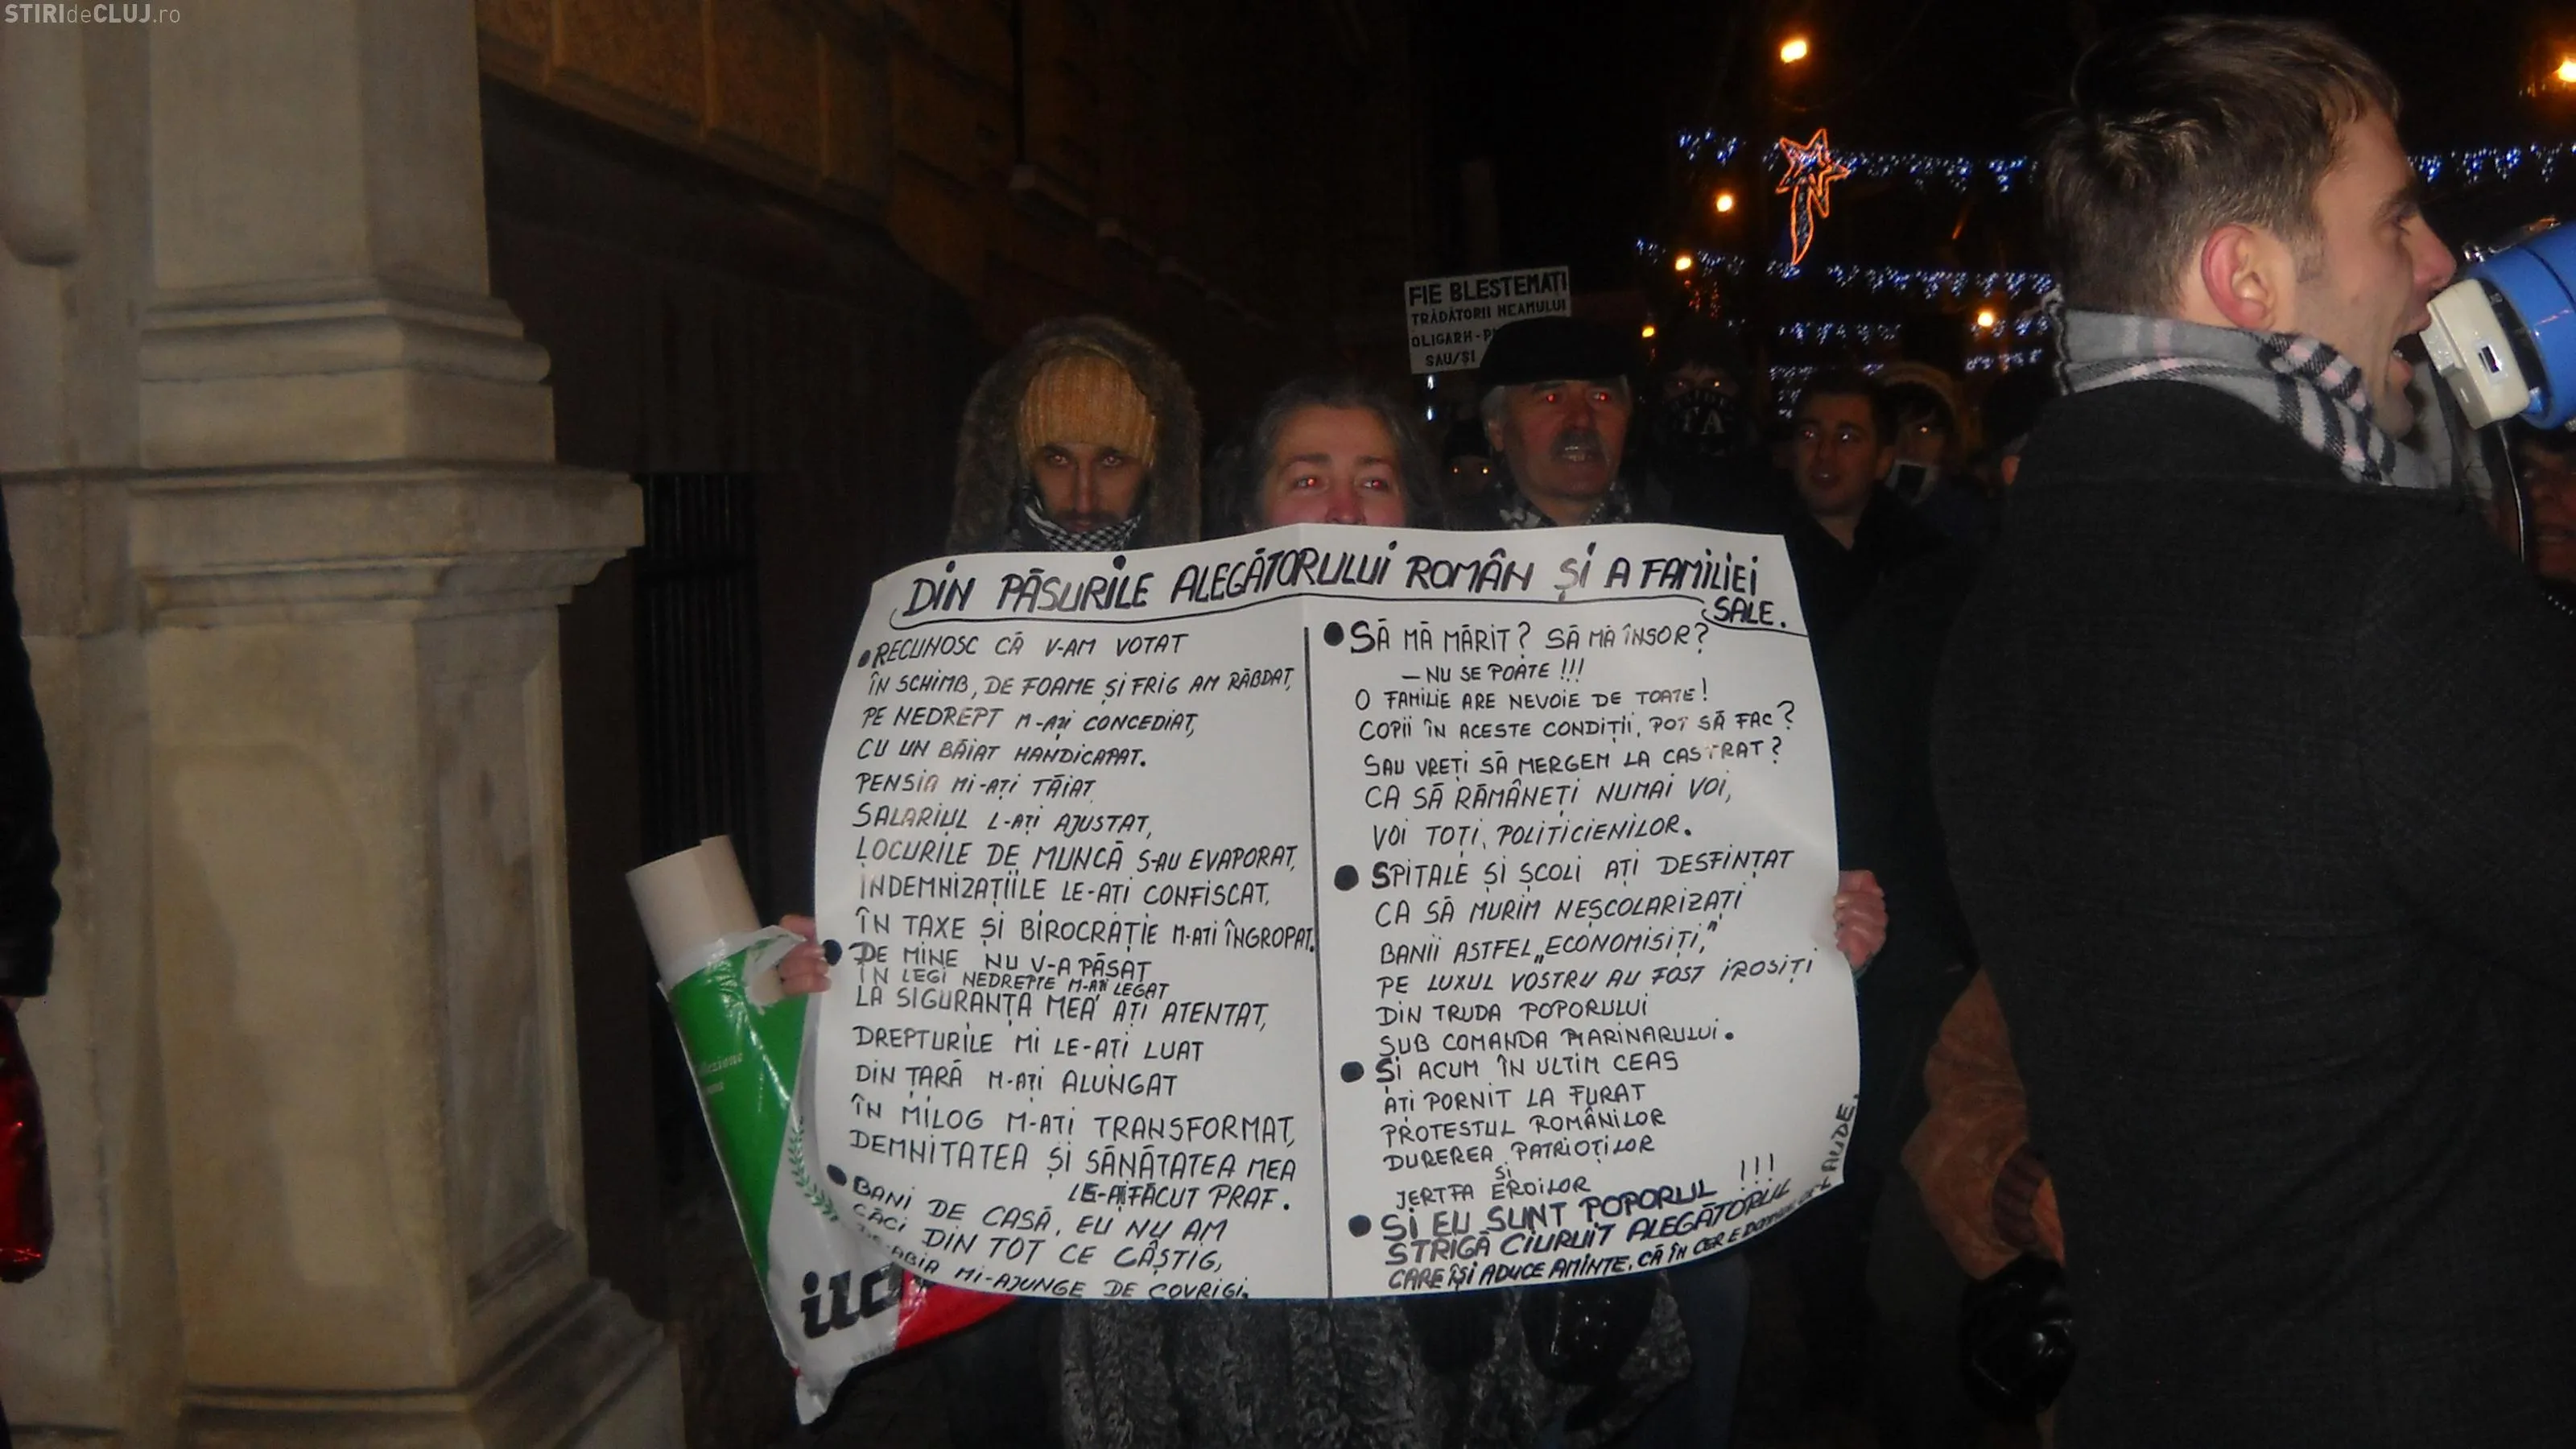 STIRIdeCLUJ.ro
FIE BLESTEMAȚI
TRĂDĂTORII NEAMULUI
OLIGARH-P
SAU/ȘI
DIN PĂSURILE ALEGĂTORULUI ROMÂN ȘI A FAMILIEI
SALE.
RECUNOSC CĂ V-AM VOTAT
ÎN SCHIMB, DE FOAME ȘI FRIG AM RĂBDAT,
PE NEDREPT M-AȚI CONCEDIAT,
CU UN BĂIAT HANDICAPAT.
PENSIA MI-AȚI TĂIAT
SALARIUL L-AȚI AJUSTAT,
LOCURILE DE MUNCĂ S-AU EVAPORAT,
INDEMNIZAȚIILE LE-AȚI CONFISCAT,
ÎN TAXE ȘI BIROCRAȚIE M-AȚI ÎNGROPAT.
DE MINE NU V-A PĂSAT
ÎN LEGI NEDREPTE M-AȚI LEGAT
LA SIGURANȚA MEA AȚI ATENTAT,
DREPTURILE MI LE-AȚI LUAT
DIN ȚARĂ M-AȚI ALUNGAT
ÎN MILOG M-AȚI TRANSFORMAT,
DEMNITATEA ȘI SĂNĂTATEA MEA
LE-AȚI FĂCUT PRAF.
BANI DE CASĂ, EU NU AM
CĂCI DIN TOT CE CÂȘTIG,
MI-AJUNGE DE COVRIGI.
SĂ MĂ MĂRIT? SĂ MĂ ÎNSOR?
— NU SE POATE !!!
O FAMILIE ARE NEVOIE DE TOATE!
COPII ÎN ACESTE CONDIȚII, POT SĂ FAC?
SAU VREȚI SĂ MERGEM LA CASTRAT?
CA SĂ RĂMÂNEȚI NUMAI VOI,
VOI TOȚI, POLITICIENILOR.
SPITALE ȘI ȘCOLI AȚI DESFINȚAT
CA SĂ MURIM NEȘCOLARIZAȚI
BANII ASTFEL „ECONOMISIȚI,”
PE LUXUL VOSTRU AU FOST IROSIȚI
DIN TRUDA POPORULUI
SUB COMANDA MARINARULUI.
ȘI ACUM ÎN ULTIM CEAS
AȚI PORNIT LA FURAT
PROTESTUL ROMÂNILOR
DUREREA PATRIOȚILOR
ȘI
JERTFA EROILOR
ȘI EU SUNT POPORUL !!!
STRIGĂ CIURUIT ALEGĂTORUL
CARE ÎȘI ADUCE AMINTE, CĂ ÎN CER E AUDE.